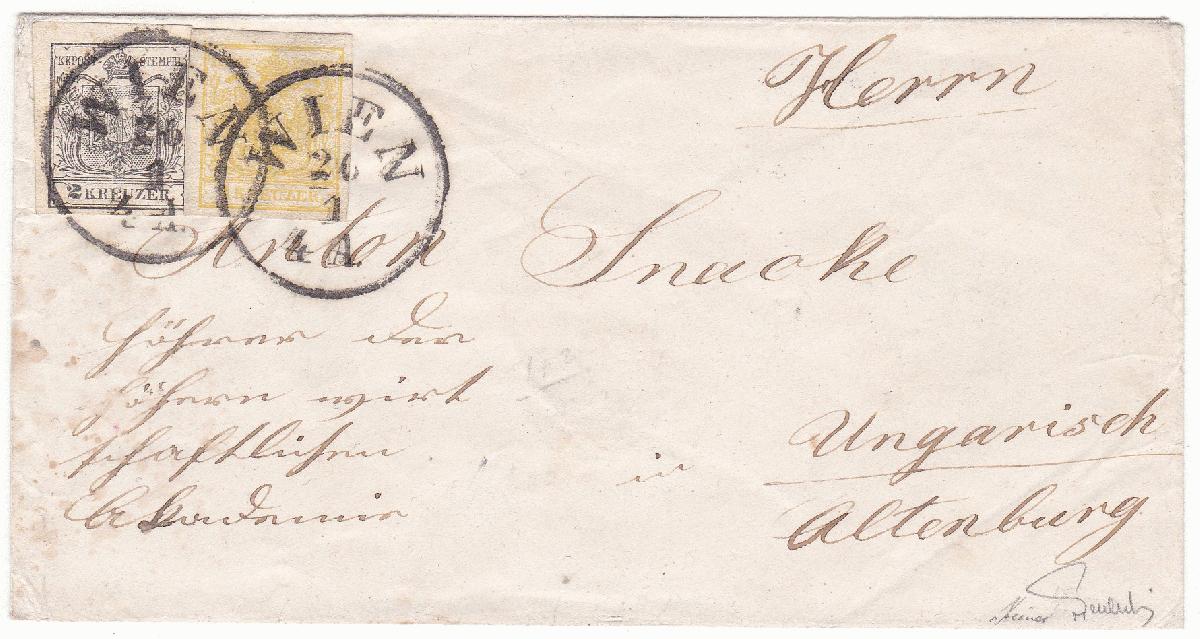 KKPOST-STEMPEL
2 KREUZER
KREUZER
WIEN
26
1
4 A.
WIEN
26
1
4 A.
Herrn
Anton Snacke
Höhrer der
höhern wirt
schaftlichen
Akademie
in Ungarisch
Altenburg